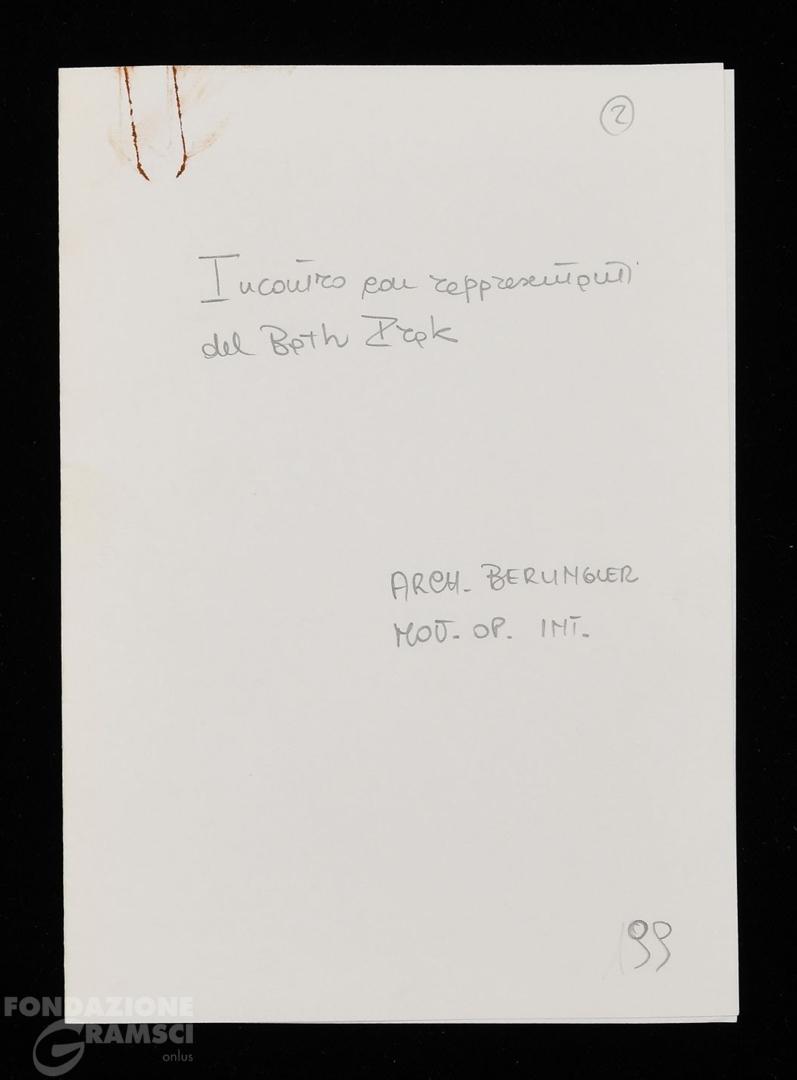 2
Incontro con rappresentanti
del Bath Irak
ARCH. BERLINGUER
MOV. OP. INT.
199
FONDAZIONE
GRAMSCI
onlus